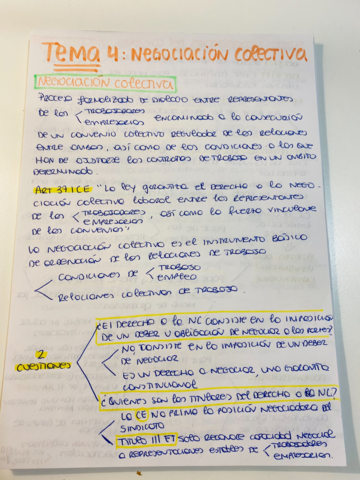 Tema 4: Negociación colectiva
Negociación colectiva
Proceso formalizado de diálogo entre representantes
de los < trabajadores
empresarios encaminado a la consecución
de un convenio colectivo regulador de las relaciones
entre ambos, así como de las condiciones a las que
han de ajustarse los contratos de trabajo en un ámbito
determinado.
Art 37.1 CE "La ley garantiza el derecho a la nego-
ciación colectiva laboral entre los representantes
de los < trabajadores
empresarios, así como la fuerza vinculante
de los convenios"
La negociación colectiva es el instrumento básico
de ordenación de las relaciones de trabajo
< Condiciones de < trabajo
empleo
Relaciones colectivas de trabajo.
2
cuestiones
¿El derecho a la NC consiste en la imposición
de un deber u obligación de negociar a las partes?
No consiste en la imposición de un deber
de negociar
Es un derecho a negociar, una garantía
constitucional
¿Quiénes son los titulares del derecho a la NC?
La CE no primó la posición negociadora del
sindicato
Título III ET solo reconoce capacidad negocial
a representaciones estables de < trabajadores
empresarios.